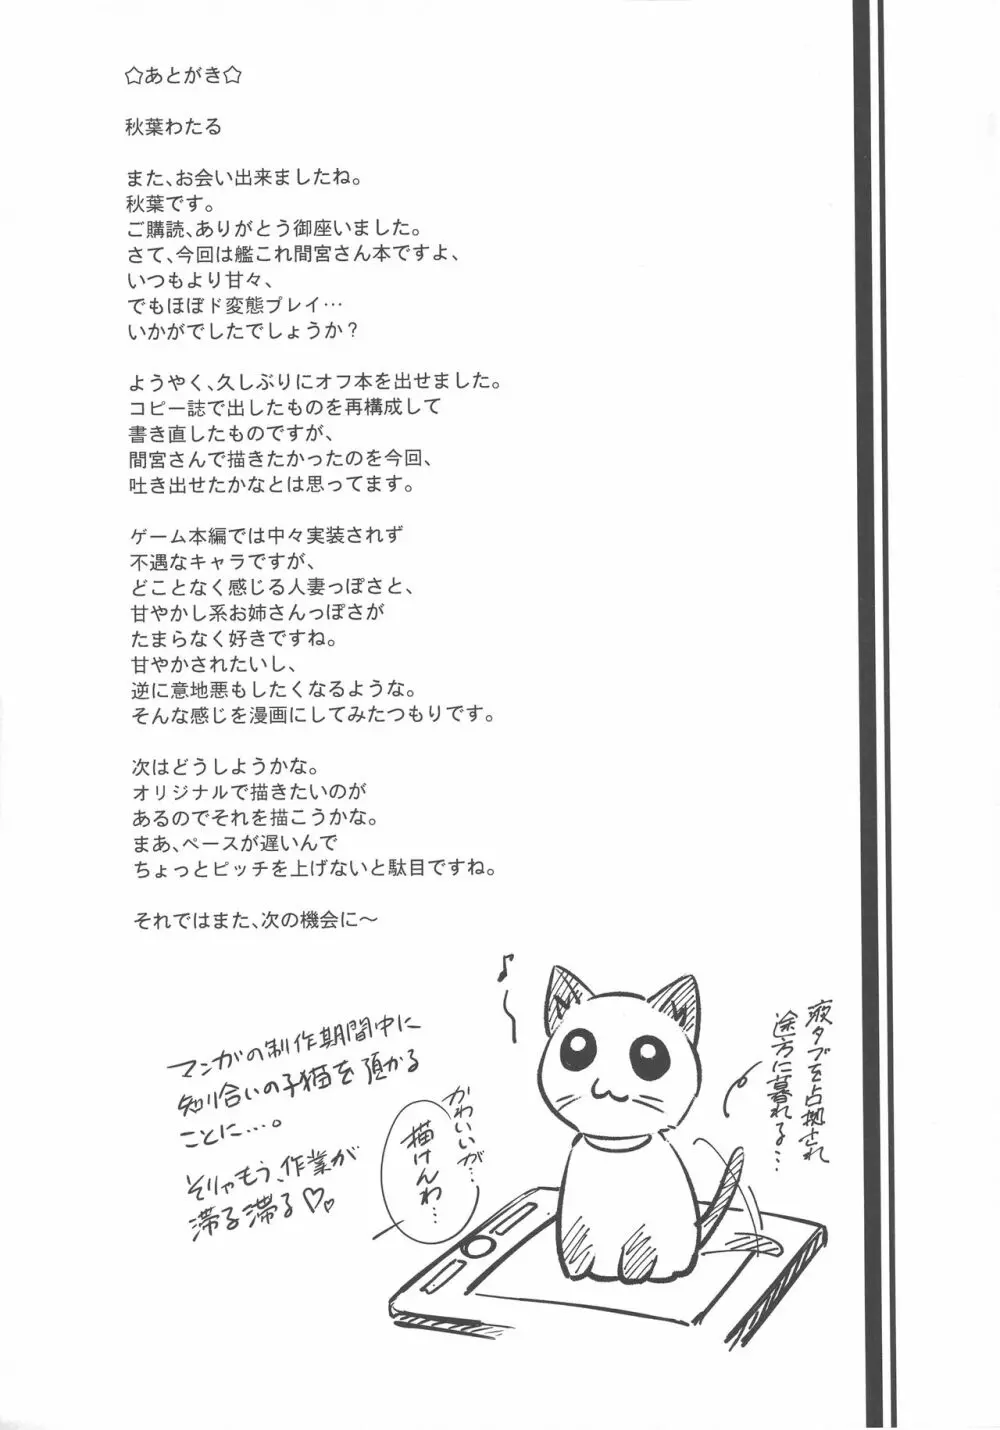 ☆あとがき☆
秋葉わたる
また、お会い出来ましたね。
秋葉です。
ご購読、ありがとう御座いました。
さて、今回は艦これ間宮さん本ですよ、
いつもより甘々、
でもほぼド変態プレイ…
いかがでしたでしょうか？
ようやく、久しぶりにオフ本を出せました。
コピー誌で出したものを再構成して
書き直したものですが、
間宮さんで描きたかったのを今回、
吐き出せたかなとは思ってます。
ゲーム本編では中々実装されず
不遇なキャラですが、
どことなく感じる人妻っぽさと、
甘やかし系お姉さんっぽさが
たまらなく好きですね。
甘やかされたいし、
逆に意地悪もしたくなるような。
そんな感じを漫画にしてみたつもりです。
次はどうしようかな。
オリジナルで描きたいのが
あるのでそれを描こうかな。
まあ、ペースが遅いんで
ちょっとピッチを上げないと駄目ですね。
それではまた、次の機会に～
マンガの制作期間中に
知り合いの子猫を預かる
ことに…。
そりゃもう、作業が
滞る滞る♡♡
かわいいが…
描けんわ…
液タブを占拠され
途方に暮れる…